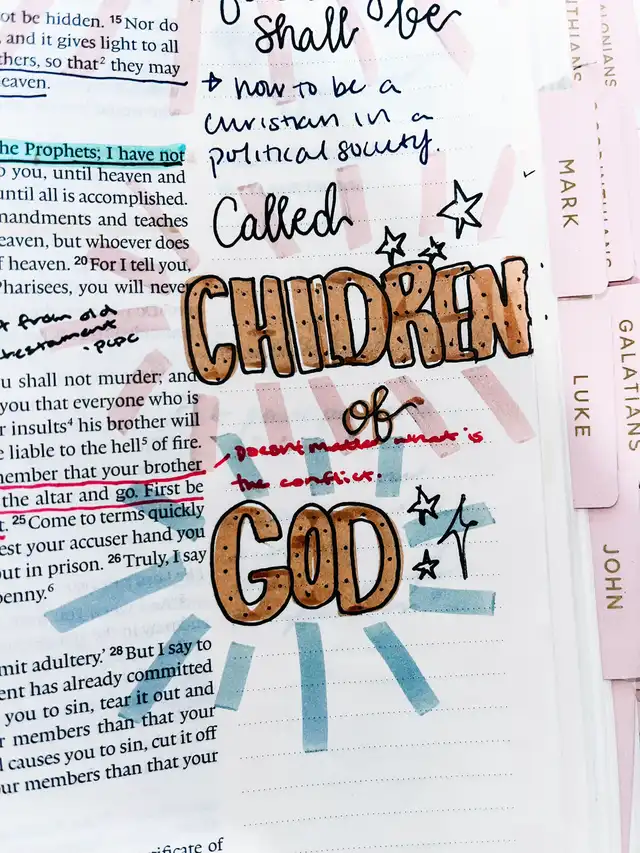 ot be hidden. 15 Nor do
, and it gives light to all
thers, so that2 they may
eaven.
he Prophets; I have not
o you, until heaven and
until all is accomplished.
mandments and teaches
eaven, but whoever does
f heaven. 20 For I tell you,
Pharisees, you will never
from old
testament
u shall not murder; and
you that everyone who is
r insults4 his brother will
e liable to the hell5 of fire.
member that your brother
the altar and go. First be
t. 25 Come to terms quickly
est your accuser hand you
out in prison. 26 Truly, I say
penny.6
mit adultery.' 28 But I say to
ent has already committed
you to sin, tear it out and
r members than that your
l causes you to sin, cut it off
ur members than that your
ificate of
be
shall
how to be a
christian in a
political society.
Called
CHILDREN
of
Doesnt matter what is
the conflict.
GOD
MARK
LUKE
JOHN
GALATIANS